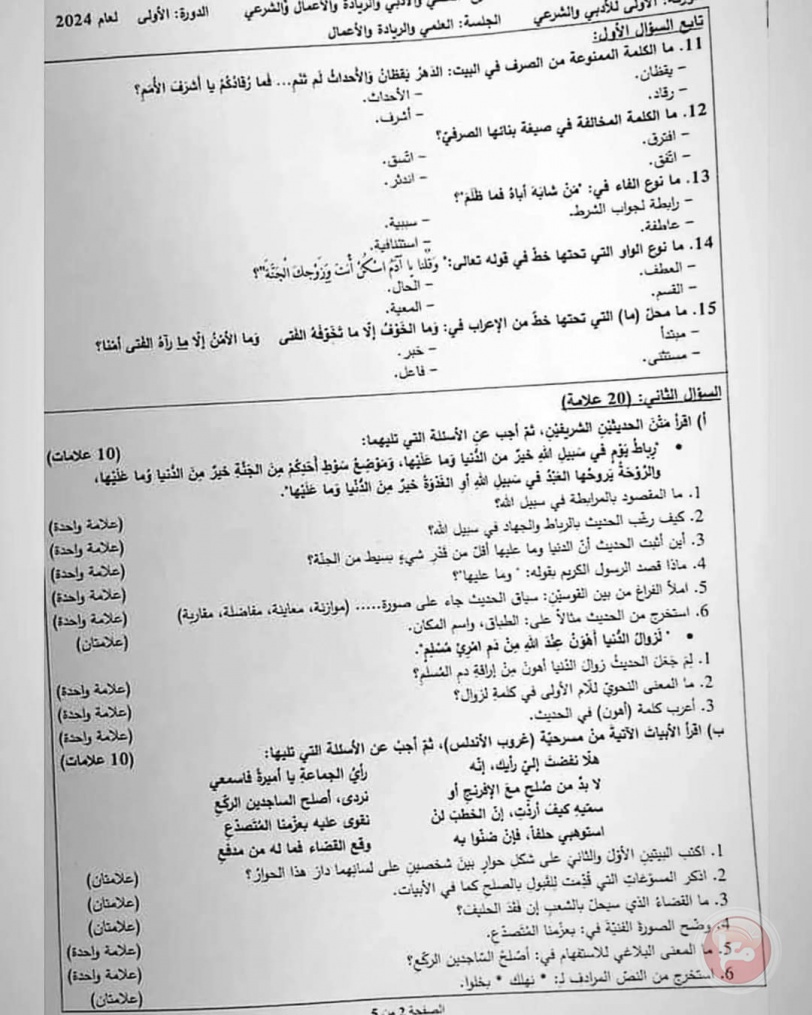 الأولى للأدبي والشرعي والأدبي والريادة والأعمال والشرعي الدورة: الأولى لعام 2024
الجلسة: العلمي والريادة والأعمال
تابع السؤال الأول:
11. ما الكلمة الممنوعة من الصرف في البيت: الدَهرُ يَقظانُ وَالأَحداثُ لَم تَنَمِ... فَما رُقادُكُمُ يا أَشرَفَ الأُمَمِ؟
- يقظان. - الأحداث.
- رقاد. - أشرف.
12. ما الكلمة المخالفة في صيغة بنائها الصرفيّ؟
- افترق. - اتّسق.
- اتّفق. - اندثر.
13. ما نوع الفاء في: "مَنْ شابَهَ أباهُ فما ظَلَمَ"؟
- رابطة لجواب الشرط. - سببية.
- عاطفة. - استئنافية.
14. ما نوع الواو التي تحتها خطّ في قوله تعالى:" وَقُلنا يا آدَمُ اسْكُنْ أَنتَ وَزَوْجُكَ الْجَنَّةَ"؟
- العطف. - الحال.
- القسم. - المعية.
15. ما محلّ (ما) التي تحتها خطّ من الإعراب في: وَما الخَوْفُ إلّا ما تَخَوَّفَهُ الفَتى وَما الأمْنُ إلّا ما رآهُ الفَتى أمْنا؟
- مبتدأ - خبر.
- مستثنى. - فاعل.
السؤال الثاني: (20 علامة)
أ) اقرأ مَتْنَ الحديثيْنِ الشريفيْنِ، ثمّ أجب عنِ الأسئلة التي تليهما: (10 علامات)
• "رِباطُ يَوْمٍ في سَبيلِ اللهِ خيرٌ من الدُّنيا وَما عَلَيْها، وَمَوْضِعُ سَوْطِ أَحَدِكُمْ مِنَ الجَنَّةِ خيرٌ مِنَ الدُّنيا وَما عَلَيْها،
والرَّوْحَةُ يَروحُها العَبْدُ في سَبيلِ اللهِ أو الغَدْوَةُ خيرٌ مِنَ الدُّنْيا وَما عَلَيْها".
1. ما المقصود بالمرابطة في سبيل الله؟ (علامة واحدة)
2. كيف رغّب الحديث بالرباط والجهاد في سبيل الله؟ (علامة واحدة)
3. أين أثبت الحديث أنّ الدنيا وما عليها أقلّ من قَدْرِ شيءٍ بسيط من الجنّة؟ (علامة واحدة)
4. ماذا قصد الرسول الكريم بقوله: " وما عليها"؟ (علامة واحدة)
5. املأ الفراغ من بين القوسيْن: سياق الحديث جاء على صورة..... (موازنة، معاينة، مفاضلة، مقاربة) (علامة واحدة)
6. استخرج من الحديث مثالًا على: الطباق، واسم المكان. (علامتان)
• " لَزوالُ الدُّنيا أَهْوَنُ عِنْدَ اللهِ مِنْ دَمِ امْرِئٍ مُسْلِمٍ".
1. لِمَ جَعَلَ الحديثُ زوالَ الدّنيا أهونَ مِنْ إراقةِ دمِ المُسلمِ؟ (علامة واحدة)
2. ما المعنى النحويّ للّام الأولى في كلمة لزوال؟ (علامة واحدة)
3. أعرب كلمة (أهون) في الحديث. (علامة واحدة)
ب) اقرأ الأبياتَ الآتيةَ منْ مسرحيّة (غروب الأندلس)، ثمّ أجبْ عن الأسئلة التي تليها: (10 علامات)
هلّا نفضتَ إليّ رأيك، إنّه رأيُ الجماعةِ يا أميرةُ فاسمعي
لا بدَّ من صُلحٍ معَ الإفرنجِ أو نردى، أصلح الساجدين الركّعِ
سمّيهِ كيفَ أردْتِ، إنّ الخطبَ لنْ نقوى عليه بعزْمنا المُتصدّعِ
استوهبي حلفاً، فإن ضنّوا به وقع القضاء فما له من مدفعِ
1. اكتب البيتينِ الأوّل والثانيَ على شكلِ حوارٍ بينَ شخصينِ على لسانِهما دارَ هذا الحوارُ؟ (علامتان)
2. اذكر المسوّغاتِ التي قُدّمت لِلقَبولِ بالصلحِ كما في الأبيات. (علامتان)
3. ما القضاءُ الذي سيحلّ بالشعبِ إن فقدَ الحليفَ؟ (علامتان)
4. وضّح الصورة الفنيّة في: بعزْمنا المُتصدّعِ. (علامة واحدة)
5. ما المعنى البلاغي للاستفهام في: أصُلحُ السّاجدين الركّعِ؟ (علامة واحدة)
6. استخرج من النصّ المرادف لـِ: * نهلك * بخلوا. (علامتان)
الصفحة 2 من 5